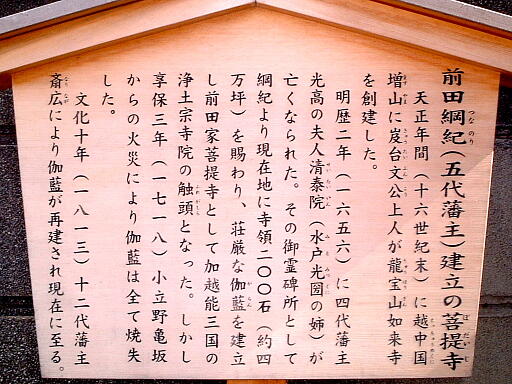 前田綱紀(五代藩主)建立の菩提寺
天正年間(十六世紀末)に越中国
増山に岌台文公上人が龍宝山如来寺
を創建した。
明暦二年(一六五六)に四代藩主
光高の夫人清泰院(水戸光圀の姉)が
亡くなられた。その御霊碑所として
綱紀より現在地に寺領二〇〇石(約四
万坪)を賜わり、荘厳な伽藍を建立
し前田家菩提寺として加越能三国の
浄土宗寺院の触頭となった。しかし
享保三年(一七一八)小立野亀坂
からの火災により伽藍は全て焼失
した。
文化十年(一八一三)十二代藩主
斎広により伽藍が再建され現在に至る。